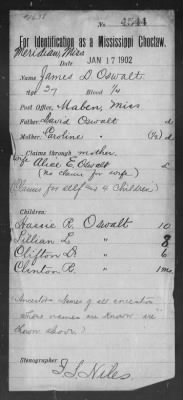 No. 4544
For Identification as a Mississippi Choctaw.
Meridian, Miss
JAN 17 1902
Date
Name James D. Oswalt
Age 27 Blood 1/16
Post Office, Maben, Miss
Father: David Oswalt d
Mother: Caroline " d
Claims through mother.
Wife Alice E. Oswalt
(No claim for wife)
(Claims for self and 4 children)
Children:
R. Oswalt 10
Lillian E. " 8
Clifton D. " 6
Clinton R. " 1 mo.
Ancestors - Names of all ancestors
whose names are known are
shown above)
Stenographer
Niles